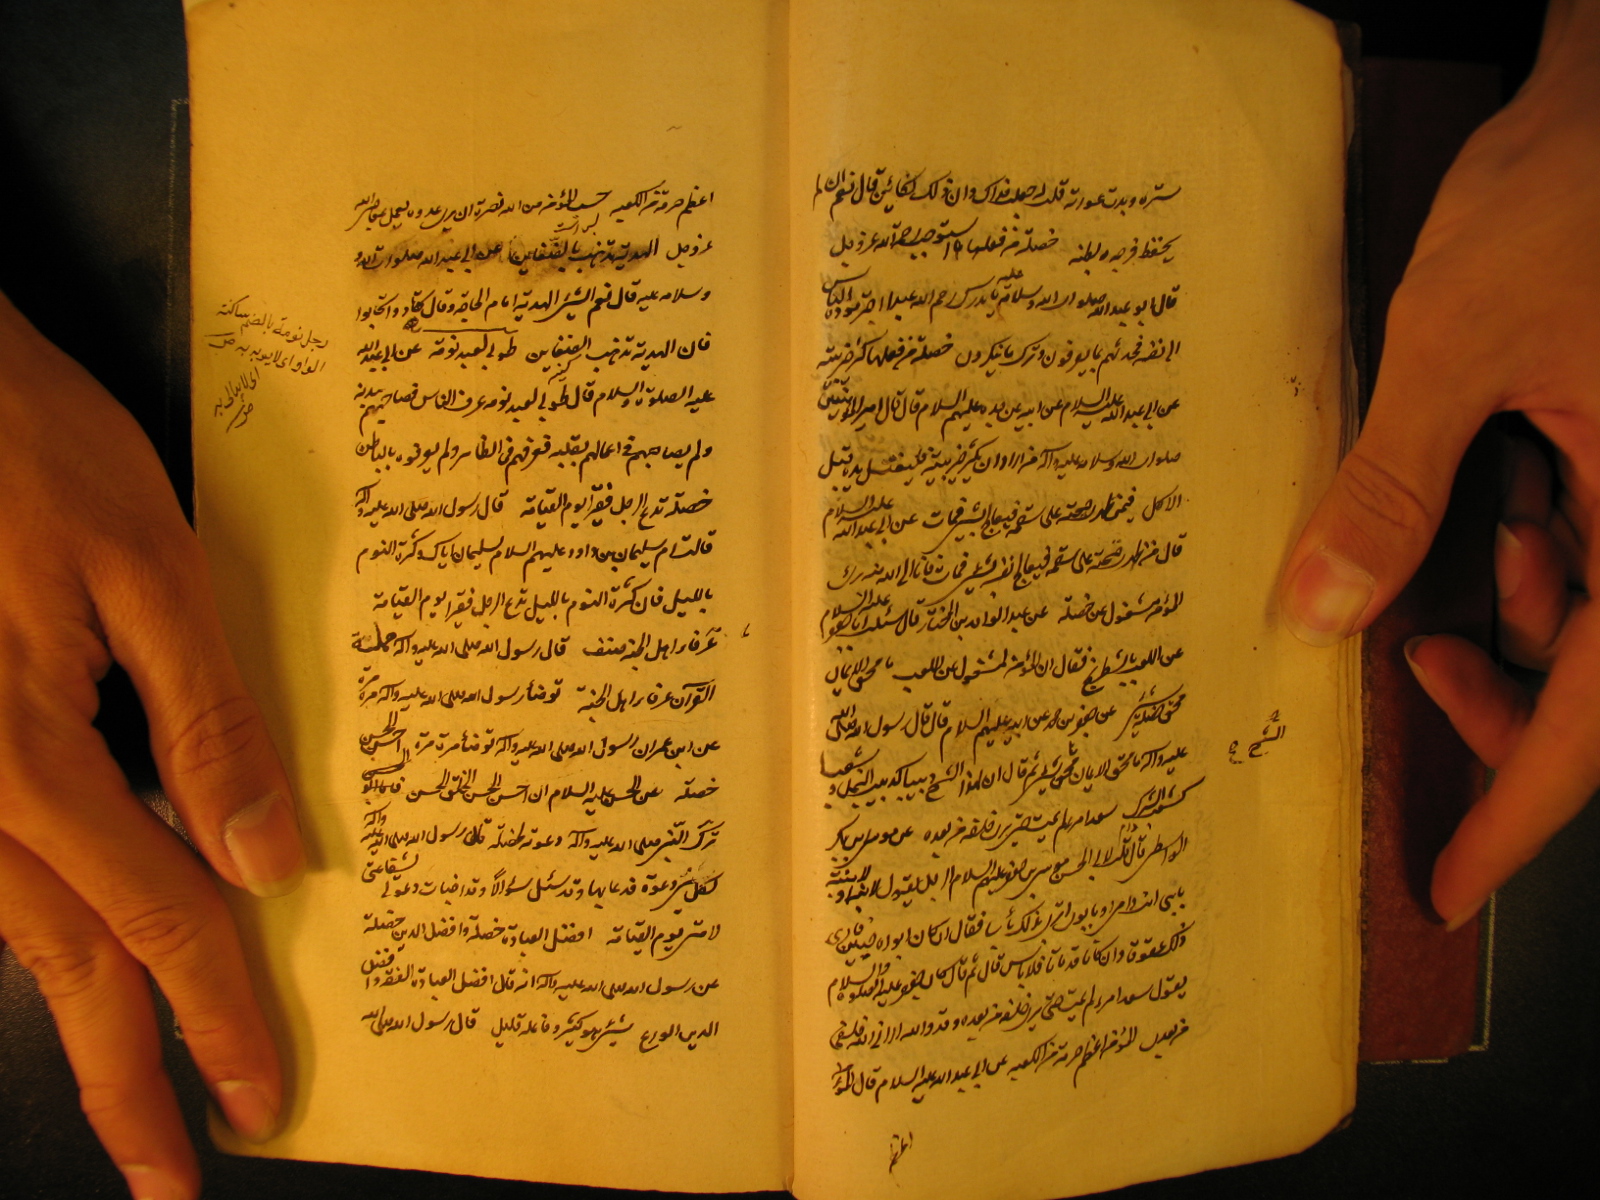 ستره وبدت عورته قلت له جعلت فداك وان ذلك لكائن قال نعم ان لم
يحفظ فرجه وبطنه خصلة من فعلها استوجب رحمة الله عز وجل
قال ابو عبد الله صلوات الله وسلامه عليه يا مدرك رحم الله عبدا اجتر مودة الناس
الى نفسه فحدثهم بما يعرفون وترك ما ينكرون خصلة من فعلها كثر خير بيته
عن ابي عبد الله عليه السلام عن ابيه عن جده عليهم السلام قال قال امير المؤمنين
صلوات الله وسلامه عليه واله من اراد ان يكثر خير بيته فليغسل يده قبل
الاكل فيمن ظهرت صحته على سقمه فيعالج بشيء فمات عن ابي عبد الله عليه السلام
قال من ظهرت صحته على سقمه فيعالج نفسه بشيء فمات فانا الى الله منه بريء
المؤمن مشغول عن خصلة عن عبد الواحد بن المختار قال سئلت ابا جعفر عليه السلام
عن اللعب بالشطرنج فقال ان المؤمن لمشغول عن اللعب ما محق الايمان
محق خصلة شيء عن جعفر بن محمد عن ابيه عليهم السلام قال قال رسول الله صلى الله
عليه واله ما محق الايمان محق الشح شيء ثم قال ان لهذا الشح دبيبا كدبيب النمل وشعبا
كشعب الشرك سعد امرء لم يمت حتى يرى خلفه من بعده عن موسى بن بكر
الواسطي قال قلت لابي الحسن موسى بن جعفر عليهم السلام الرجل يقول لابنه او لابنته
بابي انت وامي او بابوي اترى بذلك بأسا فقال ان كان ابواه حيين فارى
ذلك عقوقا وان كانا قد ماتا فلا باس قال ثم قال كان جعفر عليه الصلوة والسلام
يقول سعد امرء لم يمت حتى يرى خلفه من بعده وقد والله اراني الله خلفي
من بعدي المؤمن اعظم حرمة من الكعبة عن ابي عبد الله عليه السلام قال المؤمن
اعظم
الشح
اعظم حرمة من الكعبة حسب المؤمن من الله نصرة ان يرى عدوه يعمل بمعاصي الله
عز وجل الهدية تذهب بالضغاين عن ابي عبد الله صلوات الله
وسلامه عليه قال نعم الشيء الهدية امام الحاجة وقال تهادوا تحابوا
فان الهدية تذهب الضغاين طوبى لعبد نومة عن ابي عبد الله
عليه الصلوة والسلام قال طوبى لعبد نومة عرف الناس فصاحبهم ببدنه
ولم يصاحبهم في اعمالهم بقلبه فعرفهم في الظاهر ولم يعرفوه بالباطن
خصلة تدع الرجل فقيرا يوم القيامة قال رسول الله صلى الله عليه واله
قالت ام سليمان بن داود عليهم السلام لسليمان اياك وكثرة النوم
بالليل فان كثرة النوم بالليل تدع الرجل فقيرا يوم القيامة
عرفاء اهل الجنة صنف قال رسول الله صلى الله عليه واله حملة
القرآن عرفاء اهل الجنة توضأ رسول الله صلى الله عليه واله مرة مرة
عن ابن عمر ان رسول الله صلى الله عليه واله توضأ مرة مرة احسن الحسن
خصلة عن الحسن عليه السلام ان احسن الحسن الخلق الحسن
ترك النبي صلى الله عليه واله دعوته لخصلة قال رسول الله صلى الله عليه واله
لكل نبي دعوة قد دعا بها وقد سئل سؤالا وقد اخبات دعوتي لشفاعتي
لامتي يوم القيامة افضل العبادة خصلة وافضل الدين خصلة
عن رسول الله صلى الله عليه واله انه قال افضل العبادة الفقه وافضل
الدين الورع شيء هو كثير وفاعله قليل قال رسول الله صلى الله
رجل نومة بالضم ساكنة
الواو اي لا يوبه به
اي لا يبالى به